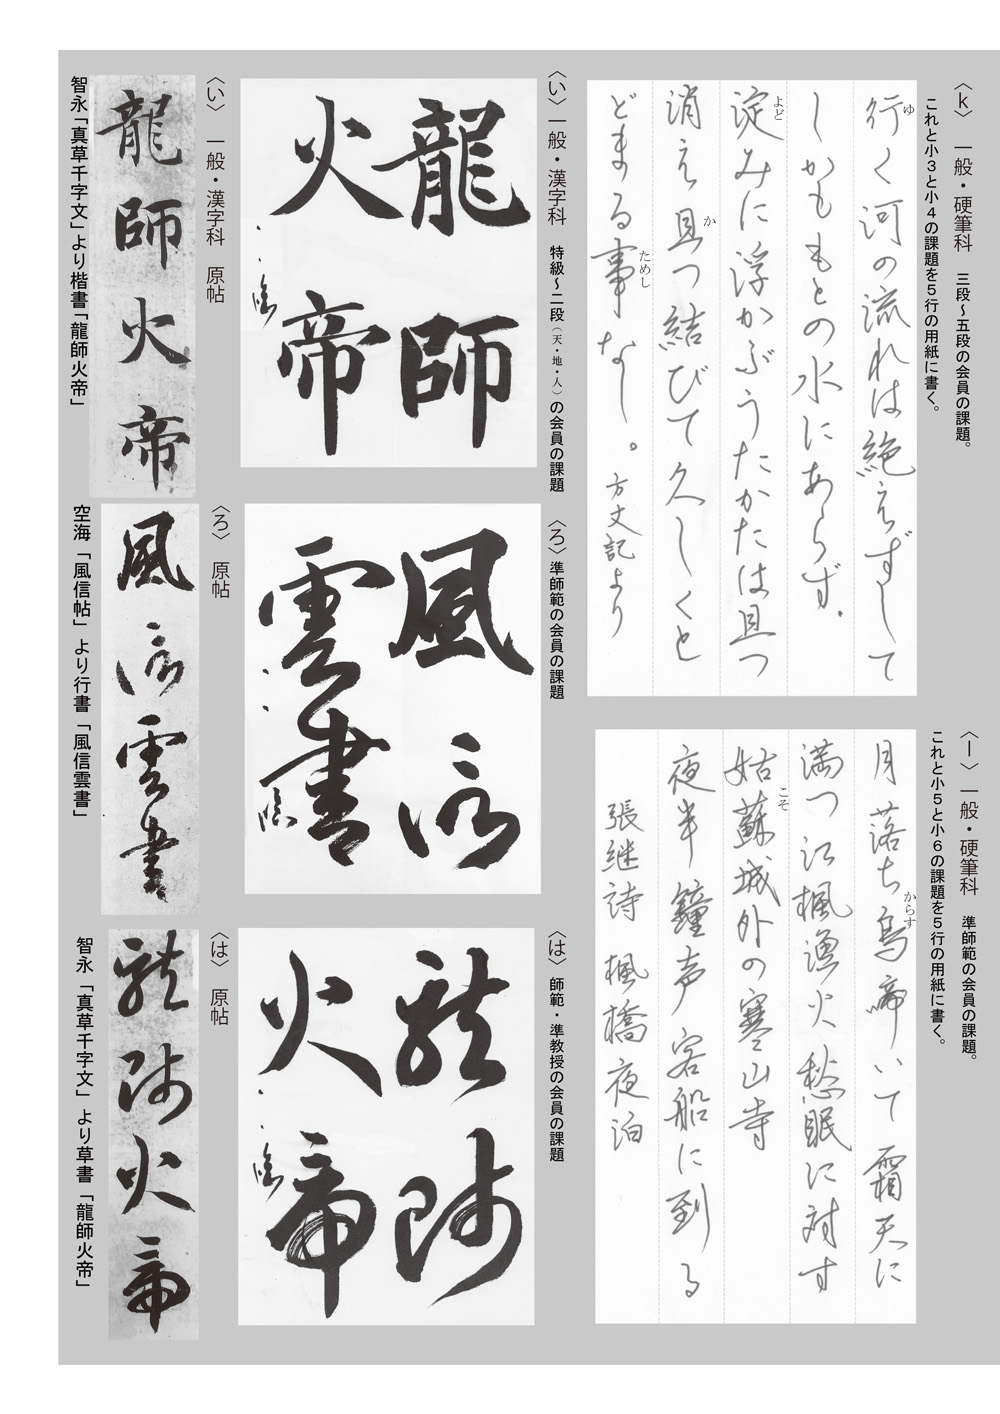 〈k〉 一般・硬筆科 三段～五段の会員の課題。
これと小3と小4の課題を5行の用紙に書く。
行く河の流れは絶えずして
ゆ
しかももとの水にあらず.
淀みに浮かぶうたかたは且つ
よど
消え且つ結びて久しくと
か
どまる事なし。方丈記より
ためし
〈l〉 一般・硬筆科 準師範の会員の課題。
これと小5と小6の課題を5行の用紙に書く。
月落ち烏啼いて霜天に
からす
満つ江楓漁火愁眠に対す
姑蘇城外の寒山寺
こそ
夜半鐘声客船に到る
張継詩 楓橋夜泊
〈い〉一般・漢字科 特級～二段（天・地・人）の会員の課題
龍師
火帝
〈い〉 一般・漢字科 原帖
龍師火帝
智永「真草千字文」より楷書「龍師火帝」
〈ろ〉準師範の会員の課題
風信
雲書
〈ろ〉 原帖
風信雲書
空海「風信帖」より行書「風信雲書」
〈は〉 師範・準教授の会員の課題
龍師
火帝
〈は〉 原帖
龍師火帝
智永「真草千字文」より草書「龍師火帝」